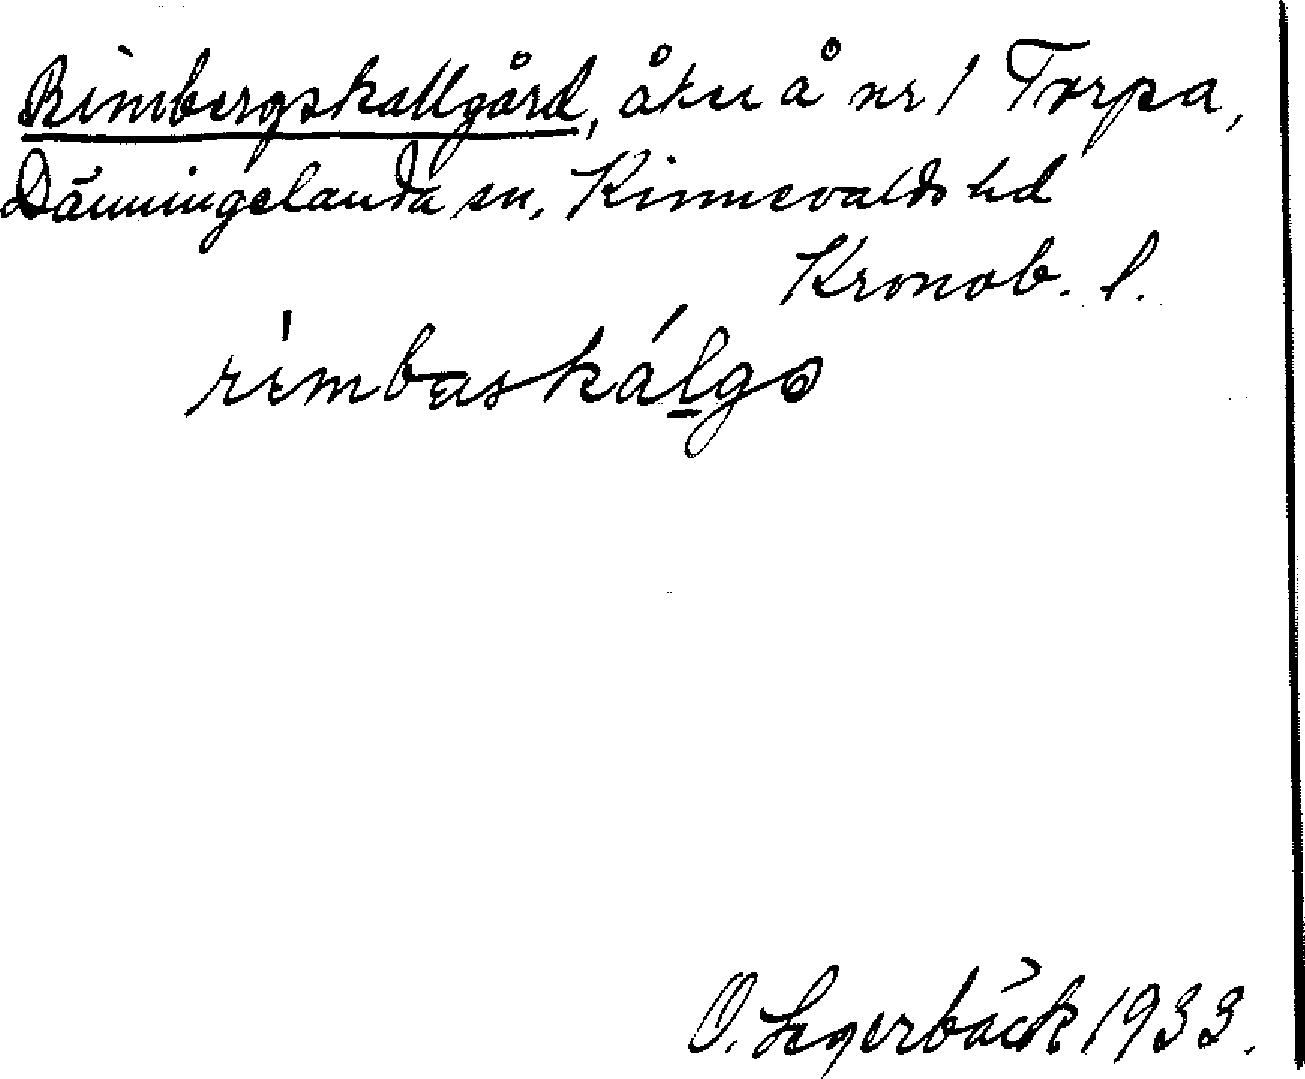 Rimbergskallgård, åker å nr 1 Torpa,
Dänningelanda sn, Kinnevalds hd
Kronob. l.
rimbaskálgo
O. Segerbäck 1933.